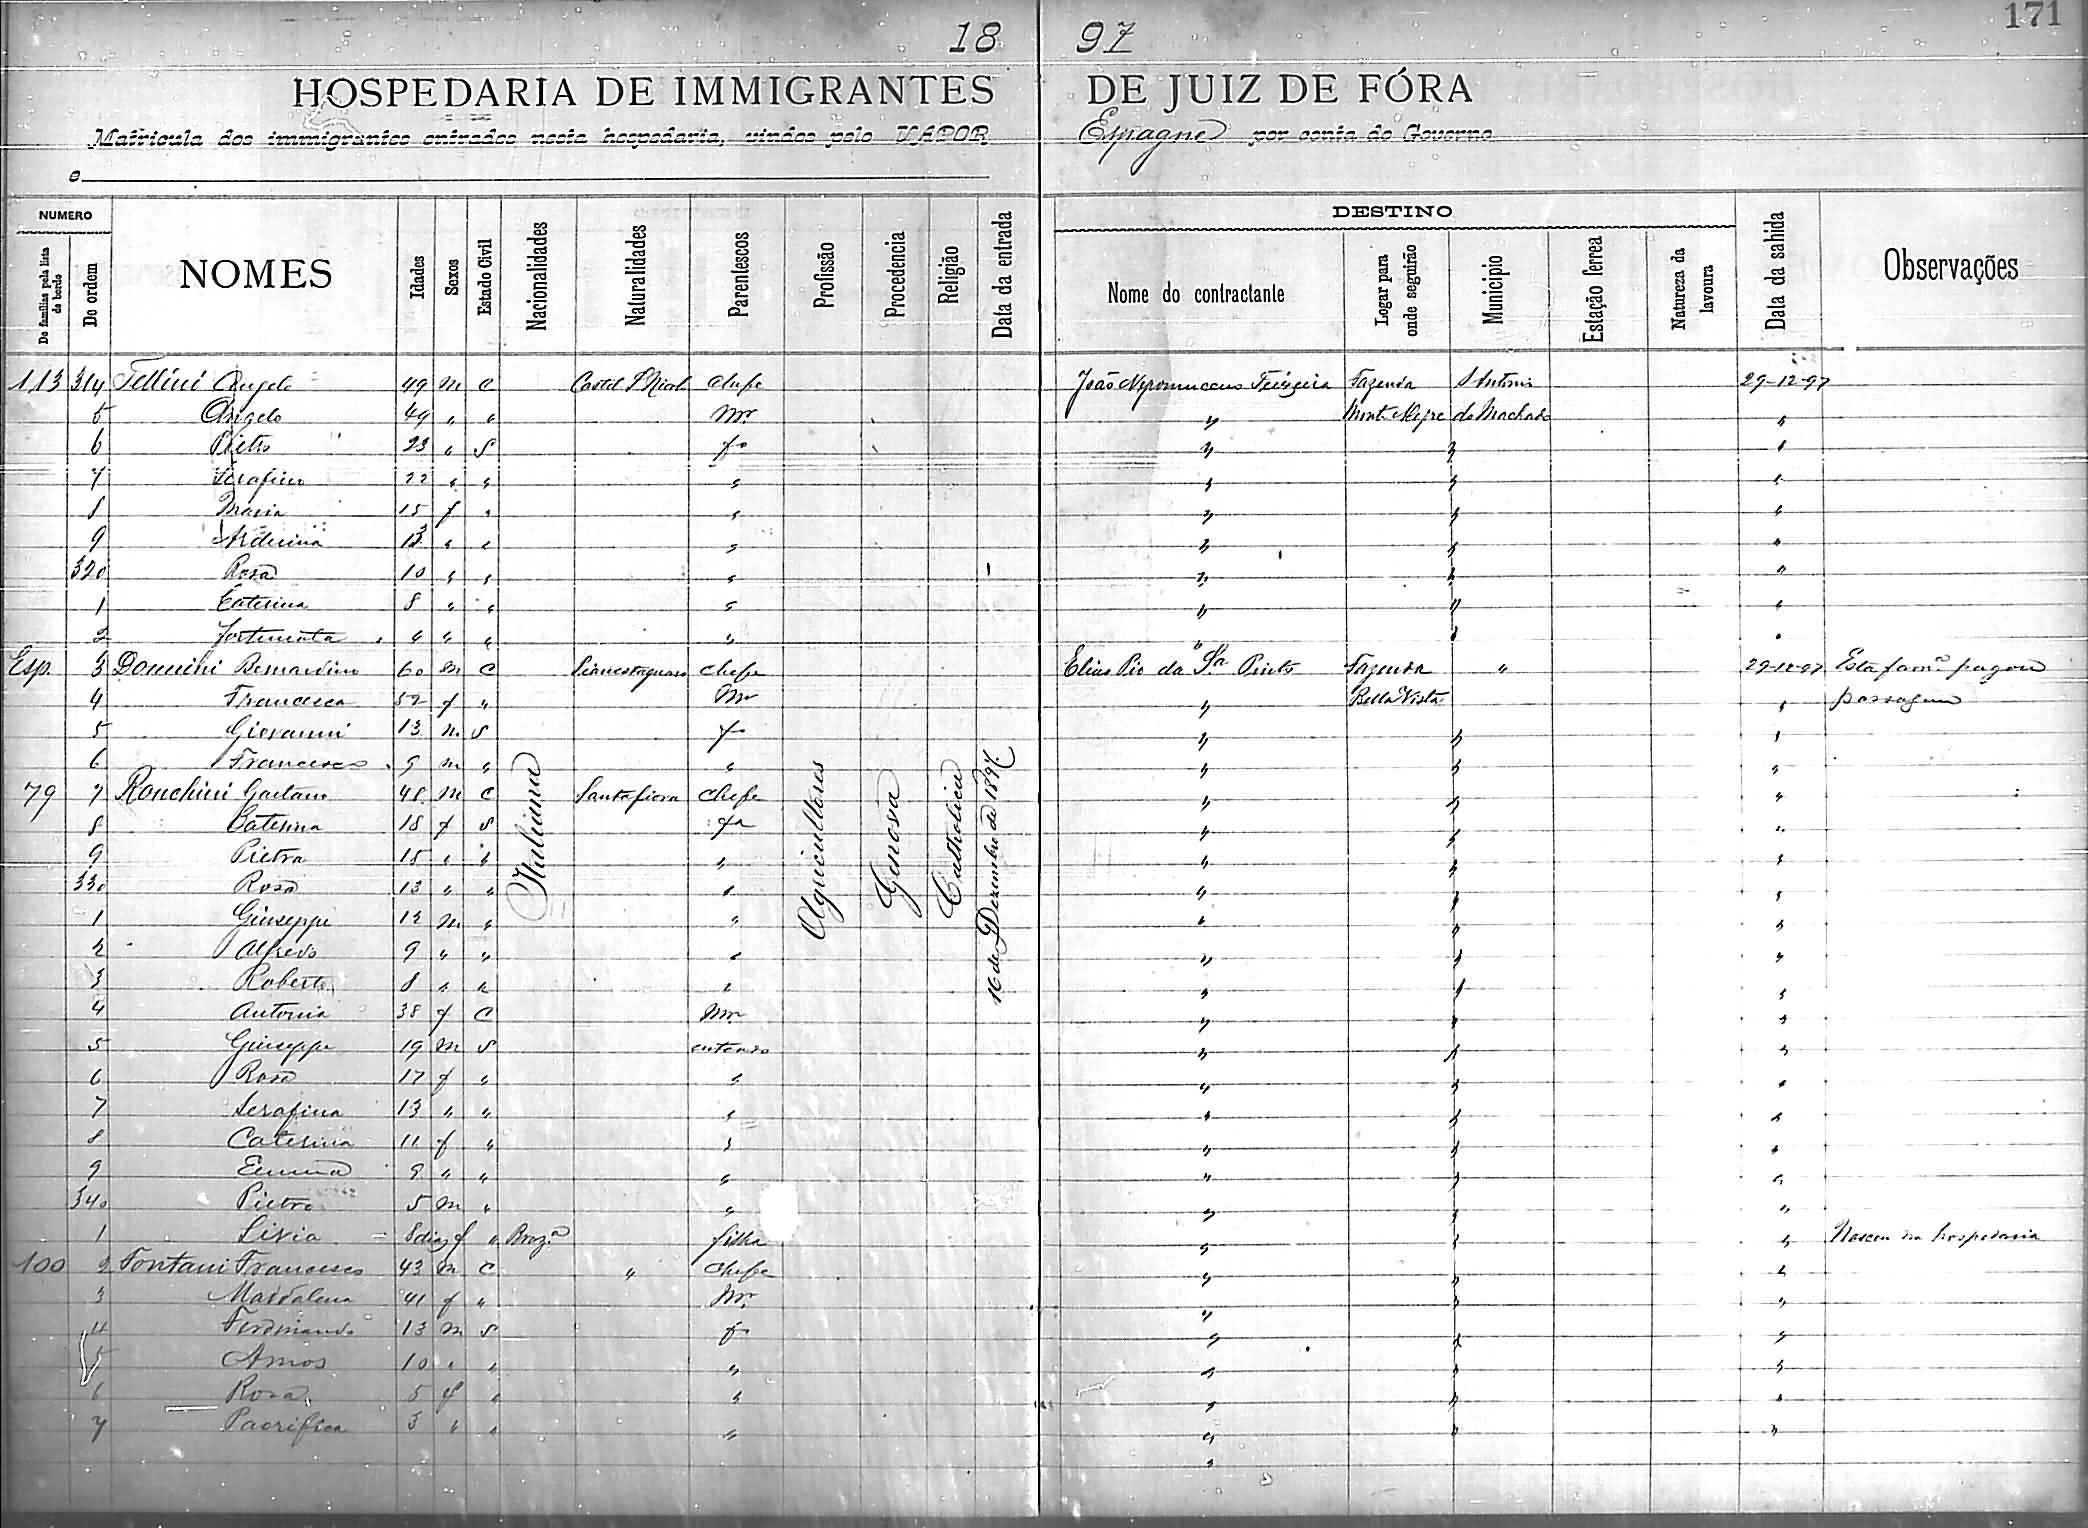 171
18 97
HOSPEDARIA DE IMMIGRANTES DE JUIZ DE FÓRA
Matricula dos immigrantes entrados nesta hospedaria, vindos pelo VAPOR Espagne por conta do Governo
e
NUMERO
De familias pela lista de bordo
De ordem
NOMES
Idades
Sexos
Estado Civil
Nacionalidades
Naturalidades
Parentescos
Profissão
Procedencia
Religião
Data da entrada
DESTINO
Nome do contractante
Logar para onde seguirão
Municipio
Estação ferrea
Natureza da lavoura
Data da sahida
Observações
113 314 Tellini Angelo 49 m C Castel chefe Teixeira Fazenda S Antonio 29-12-97
5 Angelo 49 " " Mr. " Monte Alegre do Machado "
6 Pietro 23 " S fo " " "
7 Serafino 22 " " " " " "
8 Maria 15 f " " " " "
9 13 " " " " " "
320 Rosa 10 " " " " " "
1 Caterina 8 " " " " " "
2 Fortunata 4 " " " " " "
Esp. 3 Donnini Bernardino 60 m C chefe Elias Pio da Sa. Pinto Fazenda " 29-12-97 Esta fama. pagou
4 Francesca 52 f " Mr " Bella Vista " passagem
5 Giovanni 13 m S fo " " "
6 Francesco 9 m " " " " "
79 7 Ronchini Gaetano 48 m C Santafiora chefe " " "
8 Caterina 18 f S fa " " "
9 Pietra 15 " " " " " "
330 Rosa 13 " " " " " "
1 Giuseppe 12 m " " " " "
2 Alfredo 9 " " " " " "
3 Roberto 8 " " " " " "
4 Antonia 38 f C Mr " " "
5 Giuseppe 19 m S enteado " " "
6 Rosa 17 f " " " " "
7 Serafina 13 " " " " " "
8 Caterina 11 f " " " " "
9 Emma 9 " " " " " "
340 Pietro 5 m " " " " "
1 Livia 8 dias f " Braz.a filha " " " Nasceu na hospedaria
100 2 Fontani Francesco 43 m C " chefe " " "
3 Maddalena 41 f " Mr. " " "
4 Ferdinando 13 m S fo " " "
5 Amos 10 " " " " " "
6 Rosa 5 f " " " " "
7 Pacifica 3 " " " " " "
"
Italiana
Agricultores
Genova
Catholica
16 de Dezembro de 1897.